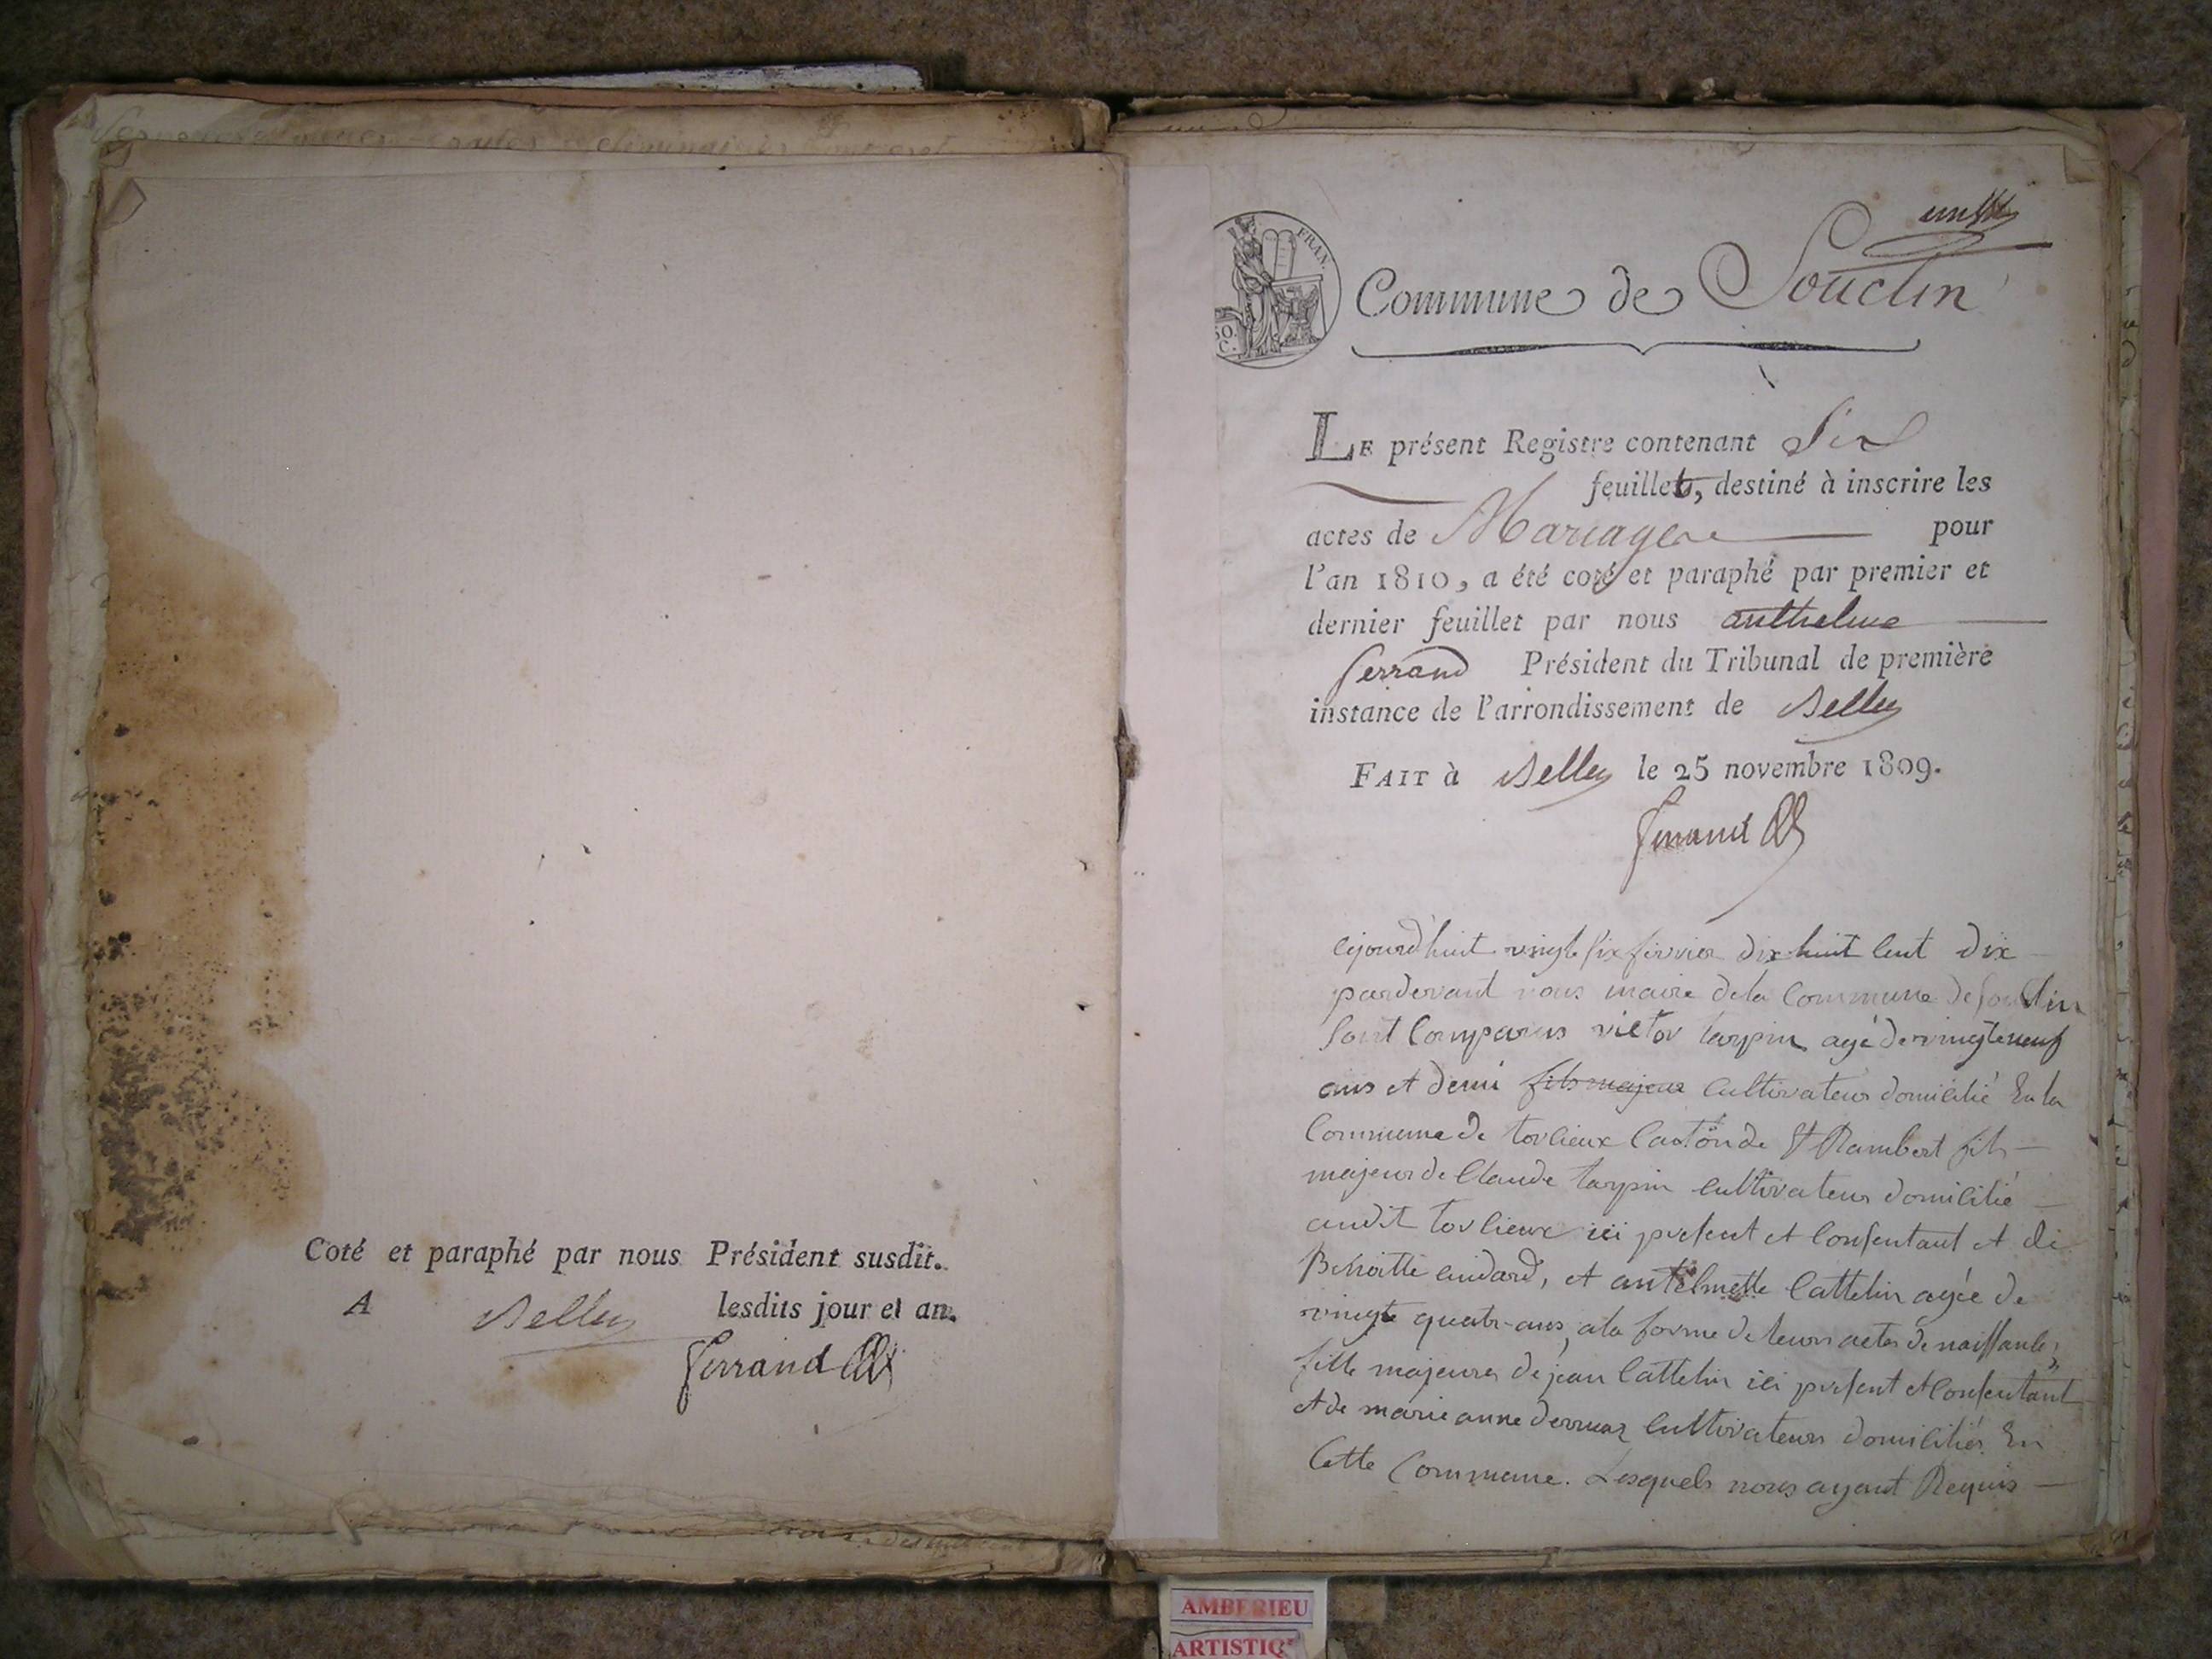 Coté et paraphé par nous Président susdit.
A Belley lesdits jour et an.
Ferrand
FRAN.
50.
C.
Commune de Souclin
LE présent Registre contenant Six
feuillets, destiné à inscrire les
actes de Mariage pour
l'an 1810, a été coté et paraphé par premier et
dernier feuillet par nous anthelme
ferrand Président du Tribunal de première
instance de l'arrondissement de Belley
FAIT à Belley le 25 novembre 1809.
Ferrand
ajourd'huit vingt six fevrier dix huit cent dix
pardevant nous maire de la commune de souclin
sont comparus victor tarpin agé de vingt neuf
ans et demi fils majeur cultivateur domicilié En la
commune de torcieux canton de St Rambert fils
majeur de Claude tarpin cultivateur domicilié
audit torcieux ici present et consentant et de
Benoitte, et antelmette Cattelin agée de
vingt quatr-ans, a la forme de leurs actes de naissance,
fille majeure de jean Cattelin ici present et consentant
et de marie anne derruaz cultivateurs domiciliés En
Cette Commune. Lesquels nous ayant Requis
AMBERIEU
ARTISTIQ